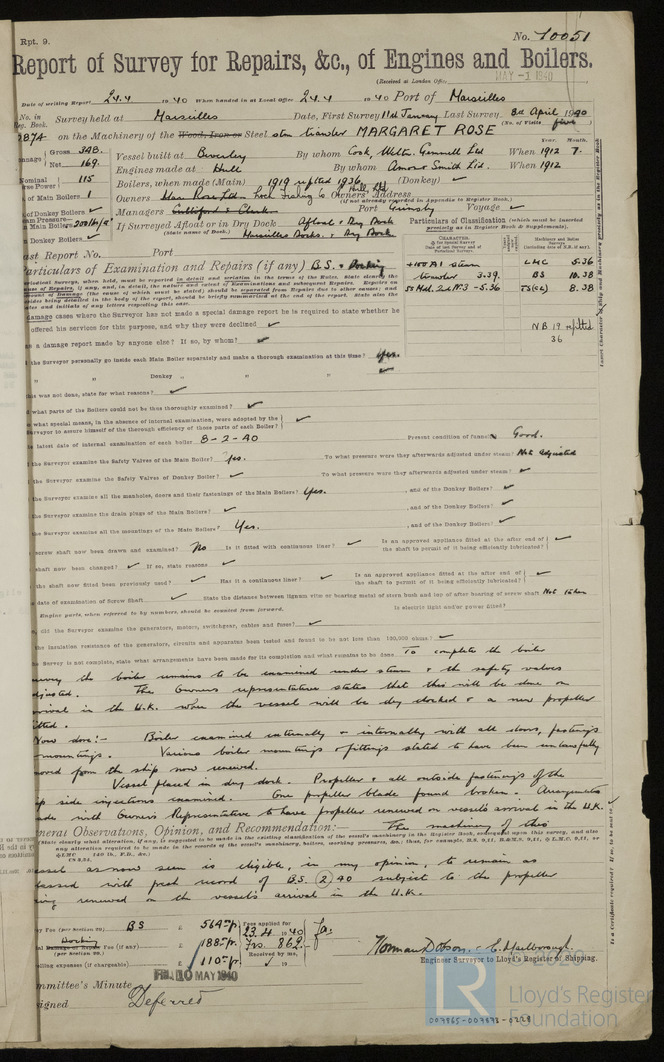 Rpt. 9.
No. 10051
Report of Survey for Repairs, &c., of Engines and Boilers.
(Received at London Office
MAY -1 1940
Date of writing Report 24.4 1940 When handed in at Local Office 24.4 1940 Port of Marseilles
No. in Reg. Book. Survey held at Marseilles Date, First Survey 11th January Last Survey 3rd April 1940
(No. of Visits five)
on the Machinery of the Wood, Iron or Steel MARGARET ROSE
Gross 348. Vessel built at Beverley By whom Cook, Welton, Gemmell Ltd When 1912 7.
Net 169. Engines made at Hull By whom Amos & Smith Ltd. When 1912
Nominal Horse Power 115 Boilers, when made (Main) 1919 refitted 1936 (Donkey) ✓
of Main Boilers 1 Owners Owners' Address
(if not already recorded in Appendix to Register Book.)
of Donkey Boilers ✓ Managers Port Grimsby Voyage ✓
Main Boilers 200 lb/□" If Surveyed Afloat or in Dry Dock Afloat & Dry Dock
Donkey Boilers ✓ (State name of Dock.) Marseilles Docks. Dry Dock
Particulars of Classification (which must be inserted precisely as in Register Book & Supplements).
Last Report No. Port
Particulars of Examination and Repairs (if any) B.S. & Docking
+100A1 steam LMC 5.36
trawler 3.39. BS 10.38
SS Hul. 2nd No3 -5.36 TS(CL) 8.38
NB 19 refitted 36
damage cases where the Surveyor has not made a special damage report he is required to state whether he
offered his services for this purpose, and why they were declined ✓
a damage report made by anyone else? If so, by whom? ✓
the Surveyor personally go inside each Main Boiler separately and make a thorough examination at this time? yes.
" Donkey " " " ✓
this was not done, state for what reasons? ✓
what parts of the Boilers could not be thus thoroughly examined? ✓
what special means, in the absence of internal examination, were adopted by the
Surveyor to assure himself of the thorough efficiency of those parts of each Boiler? ✓
latest date of internal examination of each boiler 8-2-40 Present condition of funnel Good.
the Surveyor examine the Safety Valves of the Main Boiler? Yes. To what pressure were they afterwards adjusted under steam? Not adjusted
the Surveyor examine the Safety Valves of Donkey Boiler? ✓ To what pressure were they afterwards adjusted under steam? ✓
the Surveyor examine all the manholes, doors and their fastenings of the Main Boilers? Yes. , and of the Donkey Boilers? ✓
the Surveyor examine the drain plugs of the Main Boilers? ✓ , and of the Donkey Boilers? ✓
the Surveyor examine all the mountings of the Main Boilers? Yes. , and of the Donkey Boilers? ✓
screw shaft now been drawn and examined? No Is it fitted with continuous liner? ✓ Is an approved appliance fitted at the after end of the shaft to permit of it being efficiently lubricated? ✓
shaft now been changed? ✓ If so, state reasons ✓
the shaft now fitted been previously used? ✓ Has it a continuous liner? ✓ Is an approved appliance fitted at the after end of the shaft to permit of it being efficiently lubricated? ✓
date of examination of Screw Shaft ✓ State the distance between lignum vitæ or bearing metal of stern bush and top of after bearing of screw shaft Not taken
Engine parts, when referred to by numbers, should be counted from forward. Is electric light and/or power fitted?
did the Surveyor examine the generators, motors, switchgear, cables and fuses? ✓
the insulation resistance of the generators, circuits and apparatus been tested and found to be not less than 100,000 ohms? ✓
the Survey is not complete, state what arrangements have been made for its completion and what remains to be done To complete the boiler
survey the boiler remains to be examined under steam & the safety valves
adjusted. The Owners representative states that this will be done on
arrival in the U.K. when the vessel will be dry docked & a new propeller
fitted.
Now done:- Boiler examined internally & internally with all doors, fastenings
mountings. Various boiler mountings & fittings stated to have been unlawfully
removed from the ship now renewed.
Vessel placed in dry dock. Propeller & all outside fastenings of the
side injections examined. One propeller blade found broken. Arrangements
made with Owners Representative to have propeller renewed on vessels arrival in the U.K.
General Observations, Opinion, and Recommendation:— The machinery of this
vessel as now seen is eligible, in my opinion, to remain as
classed with fresh record of B.S. (2) 40 subject to the propeller
being renewed on the vessel's arrival in the U.K.
Survey Fee (per Section 29) BS £ 564 fr. Fees applied for 23.4 1940
Docking Damage or Repair Fee (if any) (per Section 29.) £ 188 fr. Frs. 862
Travelling expenses (if chargeable) £ 110 fr. Received by me,
Norman Dobson. C. Marlborough.
Engineer Surveyor to Lloyd's Register of Shipping.
FRI. 10 MAY 1940
Committee's Minute
Assigned Deferred
© 2020
LR
Lloyd's Register
Foundation
007865-007873-0228